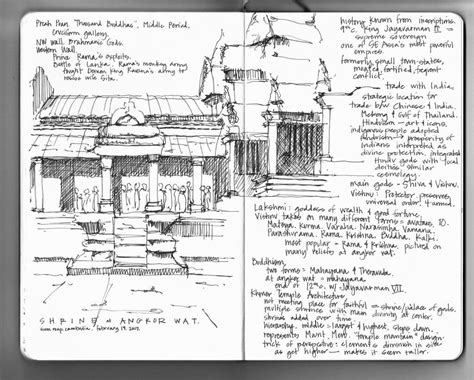 Preah Pean, Thousand Buddhas', Middle Period.
Cruciform gallery,
NW wall Brahmanic Gods.
Western Wall.
Prince Rama's exploits.
Battle of Lanka, Rama's monkey army
fought Demon King Ravana's army to
rescue wife Sita.
SHRINE @ ANGKOR WAT.
siem reap, cambodia. february 19, 2012.
history known from inscriptions.
9th c. King Jayavarman II =
supreme sovereign
one of SE Asia's most powerful
empires.
formerly small town-states,
moated, fortified, frequent
conflict.
trade with India.
strategic location for
trade b/w Chinese & India.
Mekong & Gulf of Thailand.
Hinduism - art & icons,
indigenous people adopted
Hinduism → prosperity of
Indians interpreted as
divine protection. integrated
Hindu gods with local
deities, similar
cosmology.
main gods - Shiva & Vishnu.
Vishnu: Protector, preserves
universal order, 4 armed.
Lakshmi: goddess of wealth & good fortune.
Vishnu takes on many different forms = avatars 10.
Matsya, Kurma, Varaha, Narasimha, Vamana,
Parashurama, Rama, Krishna, Buddha, Kalki.
most popular = Rama & Krishna, pictured on
many reliefs at angkor wat.
Buddhism,
two forms = Mahayana & Theravada.
at angkor wat = mahayana
end of 12th c. w/ Jayavarman VII.
Khmer Temple Architecture,
not meeting place for faithful = shrine/palace of gods.
multiple shrines with main divinity at center.
shrines added over time
hierarchy, middle = largest & highest, steps down.
represents Mount Meru. Temple mountain design.
trick of perspective: elements diminish in size
as get higher — makes it seem taller.